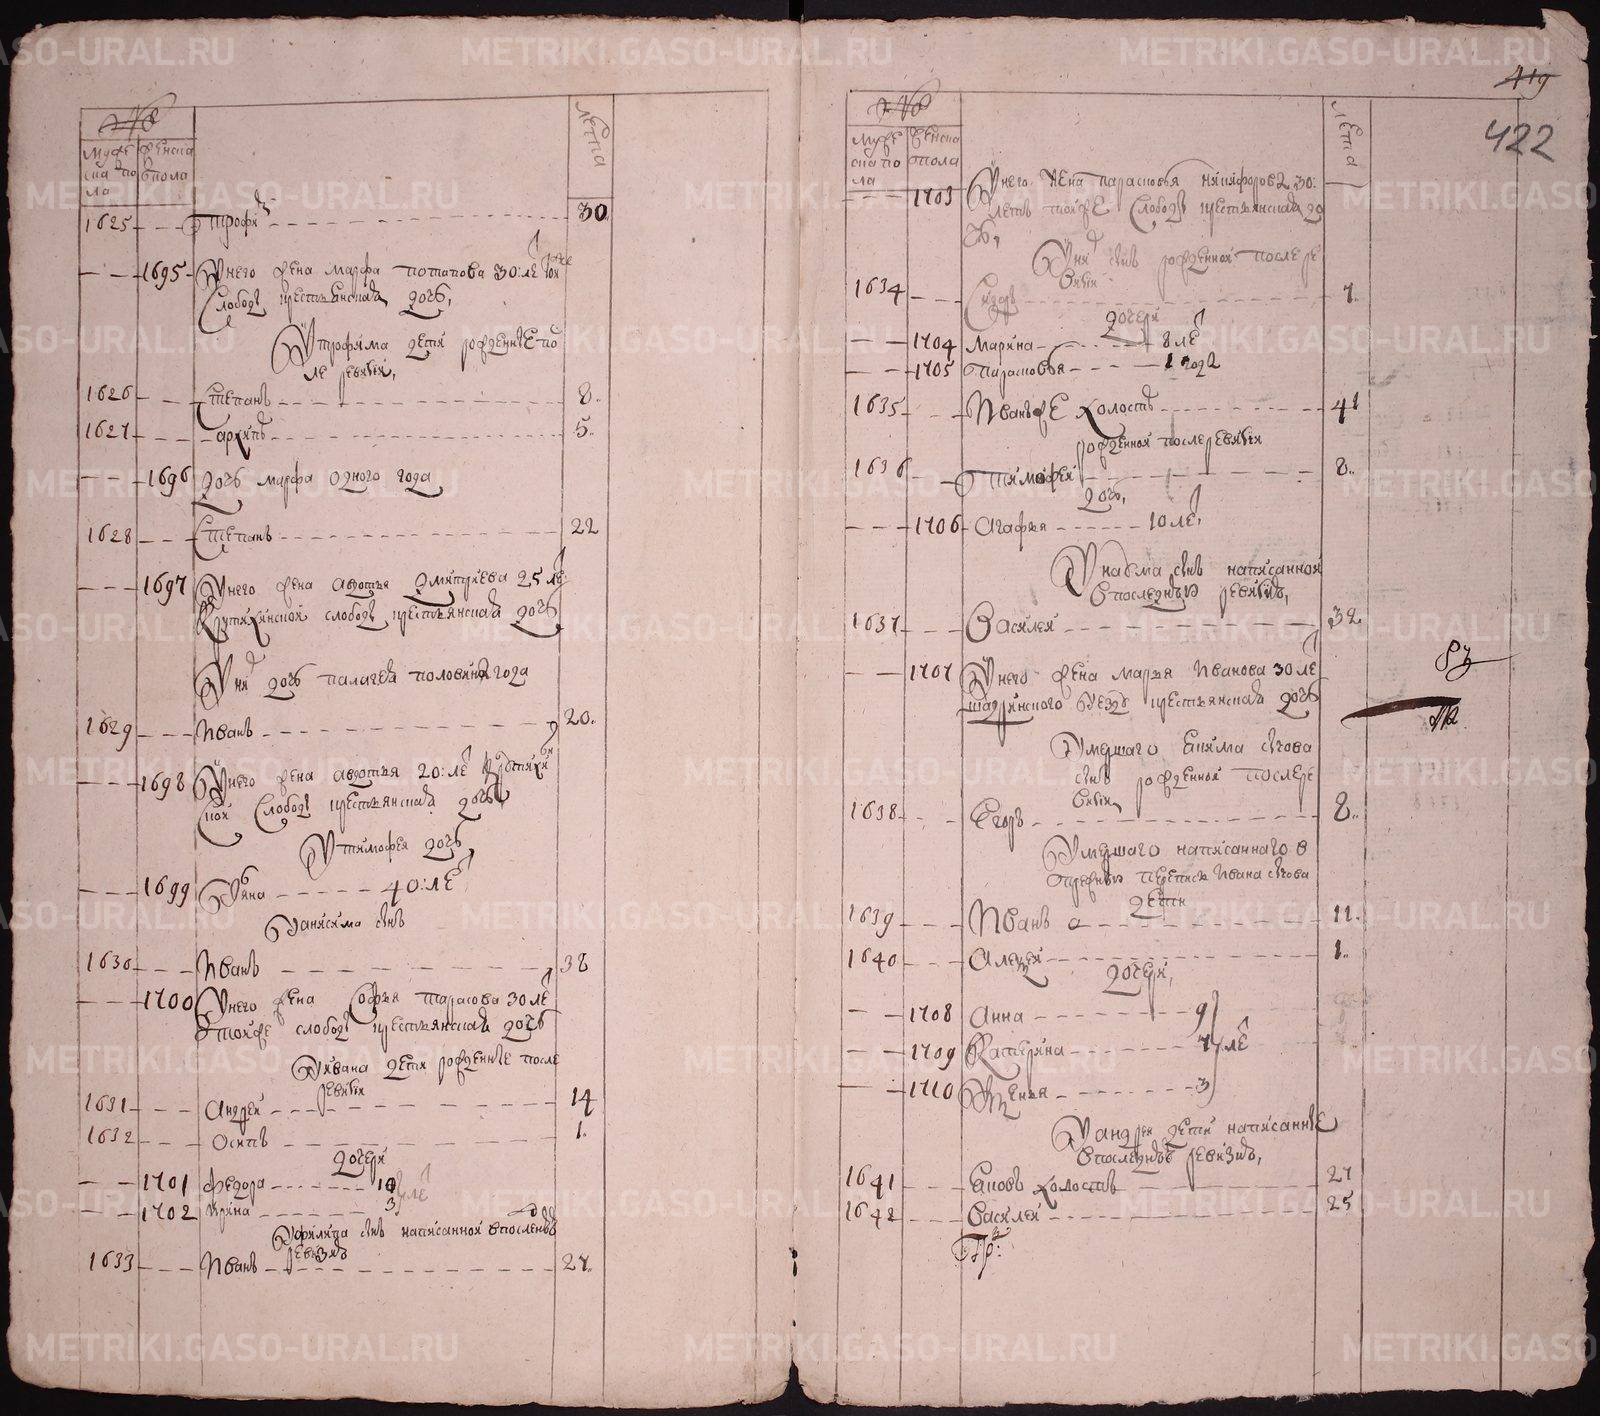 №
муже
ска по
ла
женска
пола
лета
1625 Трофим 30.
1695 У него жена марфа потапова 30: ле той же
Слободы крестьянская дочь,
У трофима дети рожденные по
ле ревизии,
1626 Степанъ 8.
1627 архипъ 5.
1696 дочь марфа одного года
1628 Степанъ 22
1697 У него жена авдотья дмитриева 25 ле
крутихинской слободы крестьянская дочь
У них дочь палагея половина года
1629 Иванъ 20.
1698 У него жена авдотья 20: ле крутихин
ской Слободы крестьянская дочь
У тимофея дочь,
1699 40: ле
У анисима сынъ
1630 Иванъ 38
1700 У него жена Софья тарасова 30 ле
той же слободы крестьянская дочь
У ивана дети рожденные после
ревизии
1631 Андрей 14
1632 Осипъ 1.
дочери
1701 федора 10
1702 ирина 3 ле
У филипа сынъ написанной в последней
ревизии
1633 Иванъ 27.
419
422
№
муже
ска по
ла
женска
пола
лета
1703 У него жена парасковья никифорова 30:
летъ той же Слободы крестьянская до
чь,
У них сынъ рожденной после ре
визии
1634 Сидоръ 7.
дочери
1704 Марина 8 ле
1705 парасковья 1 года
1635 Иванъ же холостъ 41
рожденной после ревизии
1636 тимофей 8.
дочь,
1706 Агафья 10 ле,
У наума сынъ написанной
в последней ревизии,
1637 Василей 32
1707 У него жена марья Иванова 30 ле
шадринского уезда крестьянская дочь
Умершаго екима сынова
сынъ рожденной после ре
визии
1638 Егоръ 8.
Умершаго написаннаго в
прежней переписи Ивана сынова
дети
1639 Иванъ 11.
1640 Алексей 1.
дочери,
1708 Анна 9
1709 Катерина 7 ле
1710 Ксенья 3
У андрея дети написанные
в последней ревизии,
1641 Еновъ холостъ 27
1642 Василей 25